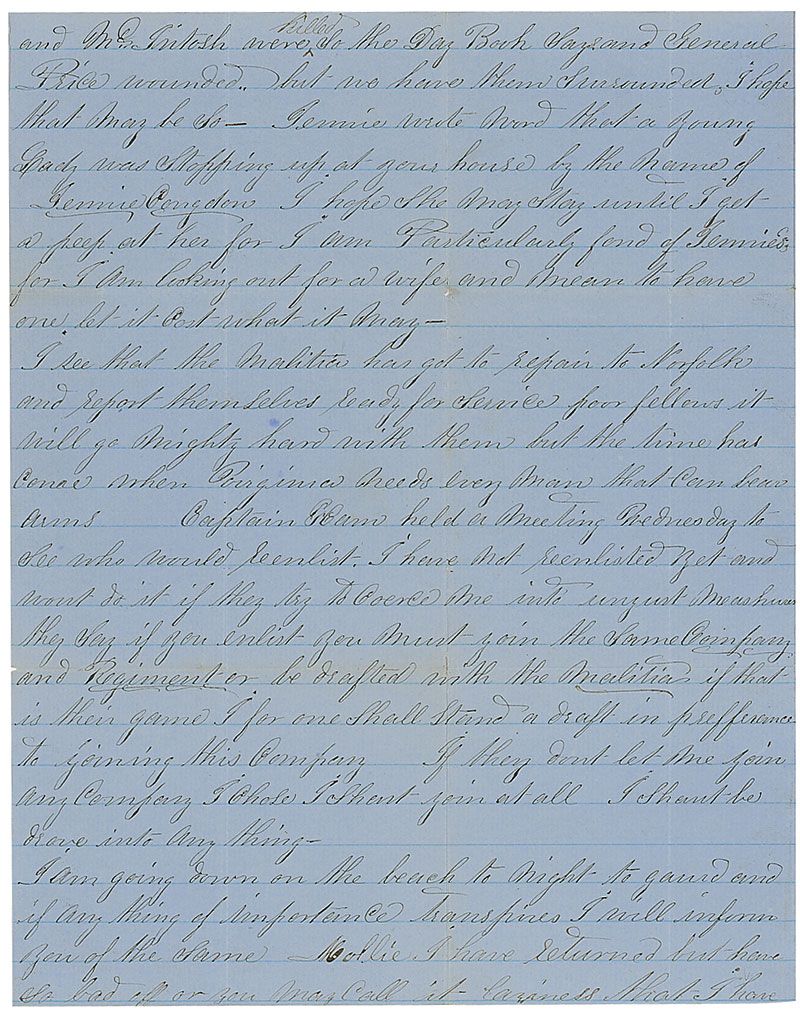 killed
and Mc Intosh were, so the Day Book says and General
Price wounded.. but we have them surrounded, I hope
that may be so — Jennie write word that a young
Lady was stopping up at your house by the name of
Jennie Congdon I hope she may stay until I get
a peep at her for I am Particularly fond of Jennie's
for I am looking out for a wife and mean to have
one let it cost what it may —
I see that the malitia has got to repair to Norfolk
and report themselves ready for service poor fellows it
will go mighty hard with them but the time has
come when Virginia needs every man that can bear
arms Captain held a meeting Wednesday to
see who would reenlist. I have not reenlisted yet and
wont do it if they try to coerce me into unjust meashures
they say if you enlist you must join the same Company
and Regiment or be drafted with the malitia if that
is their game I for one shall stand a draft in prefference
to joining this Company If they dont let me join
any Company I chose I shant join at all I shant be
drove into any thing —
I am going down on the beach to night to gaurd and
if any thing of importance transpires I will inform
you of the same Mollie I have returned but have
so bad off or you may call it laziness that I have